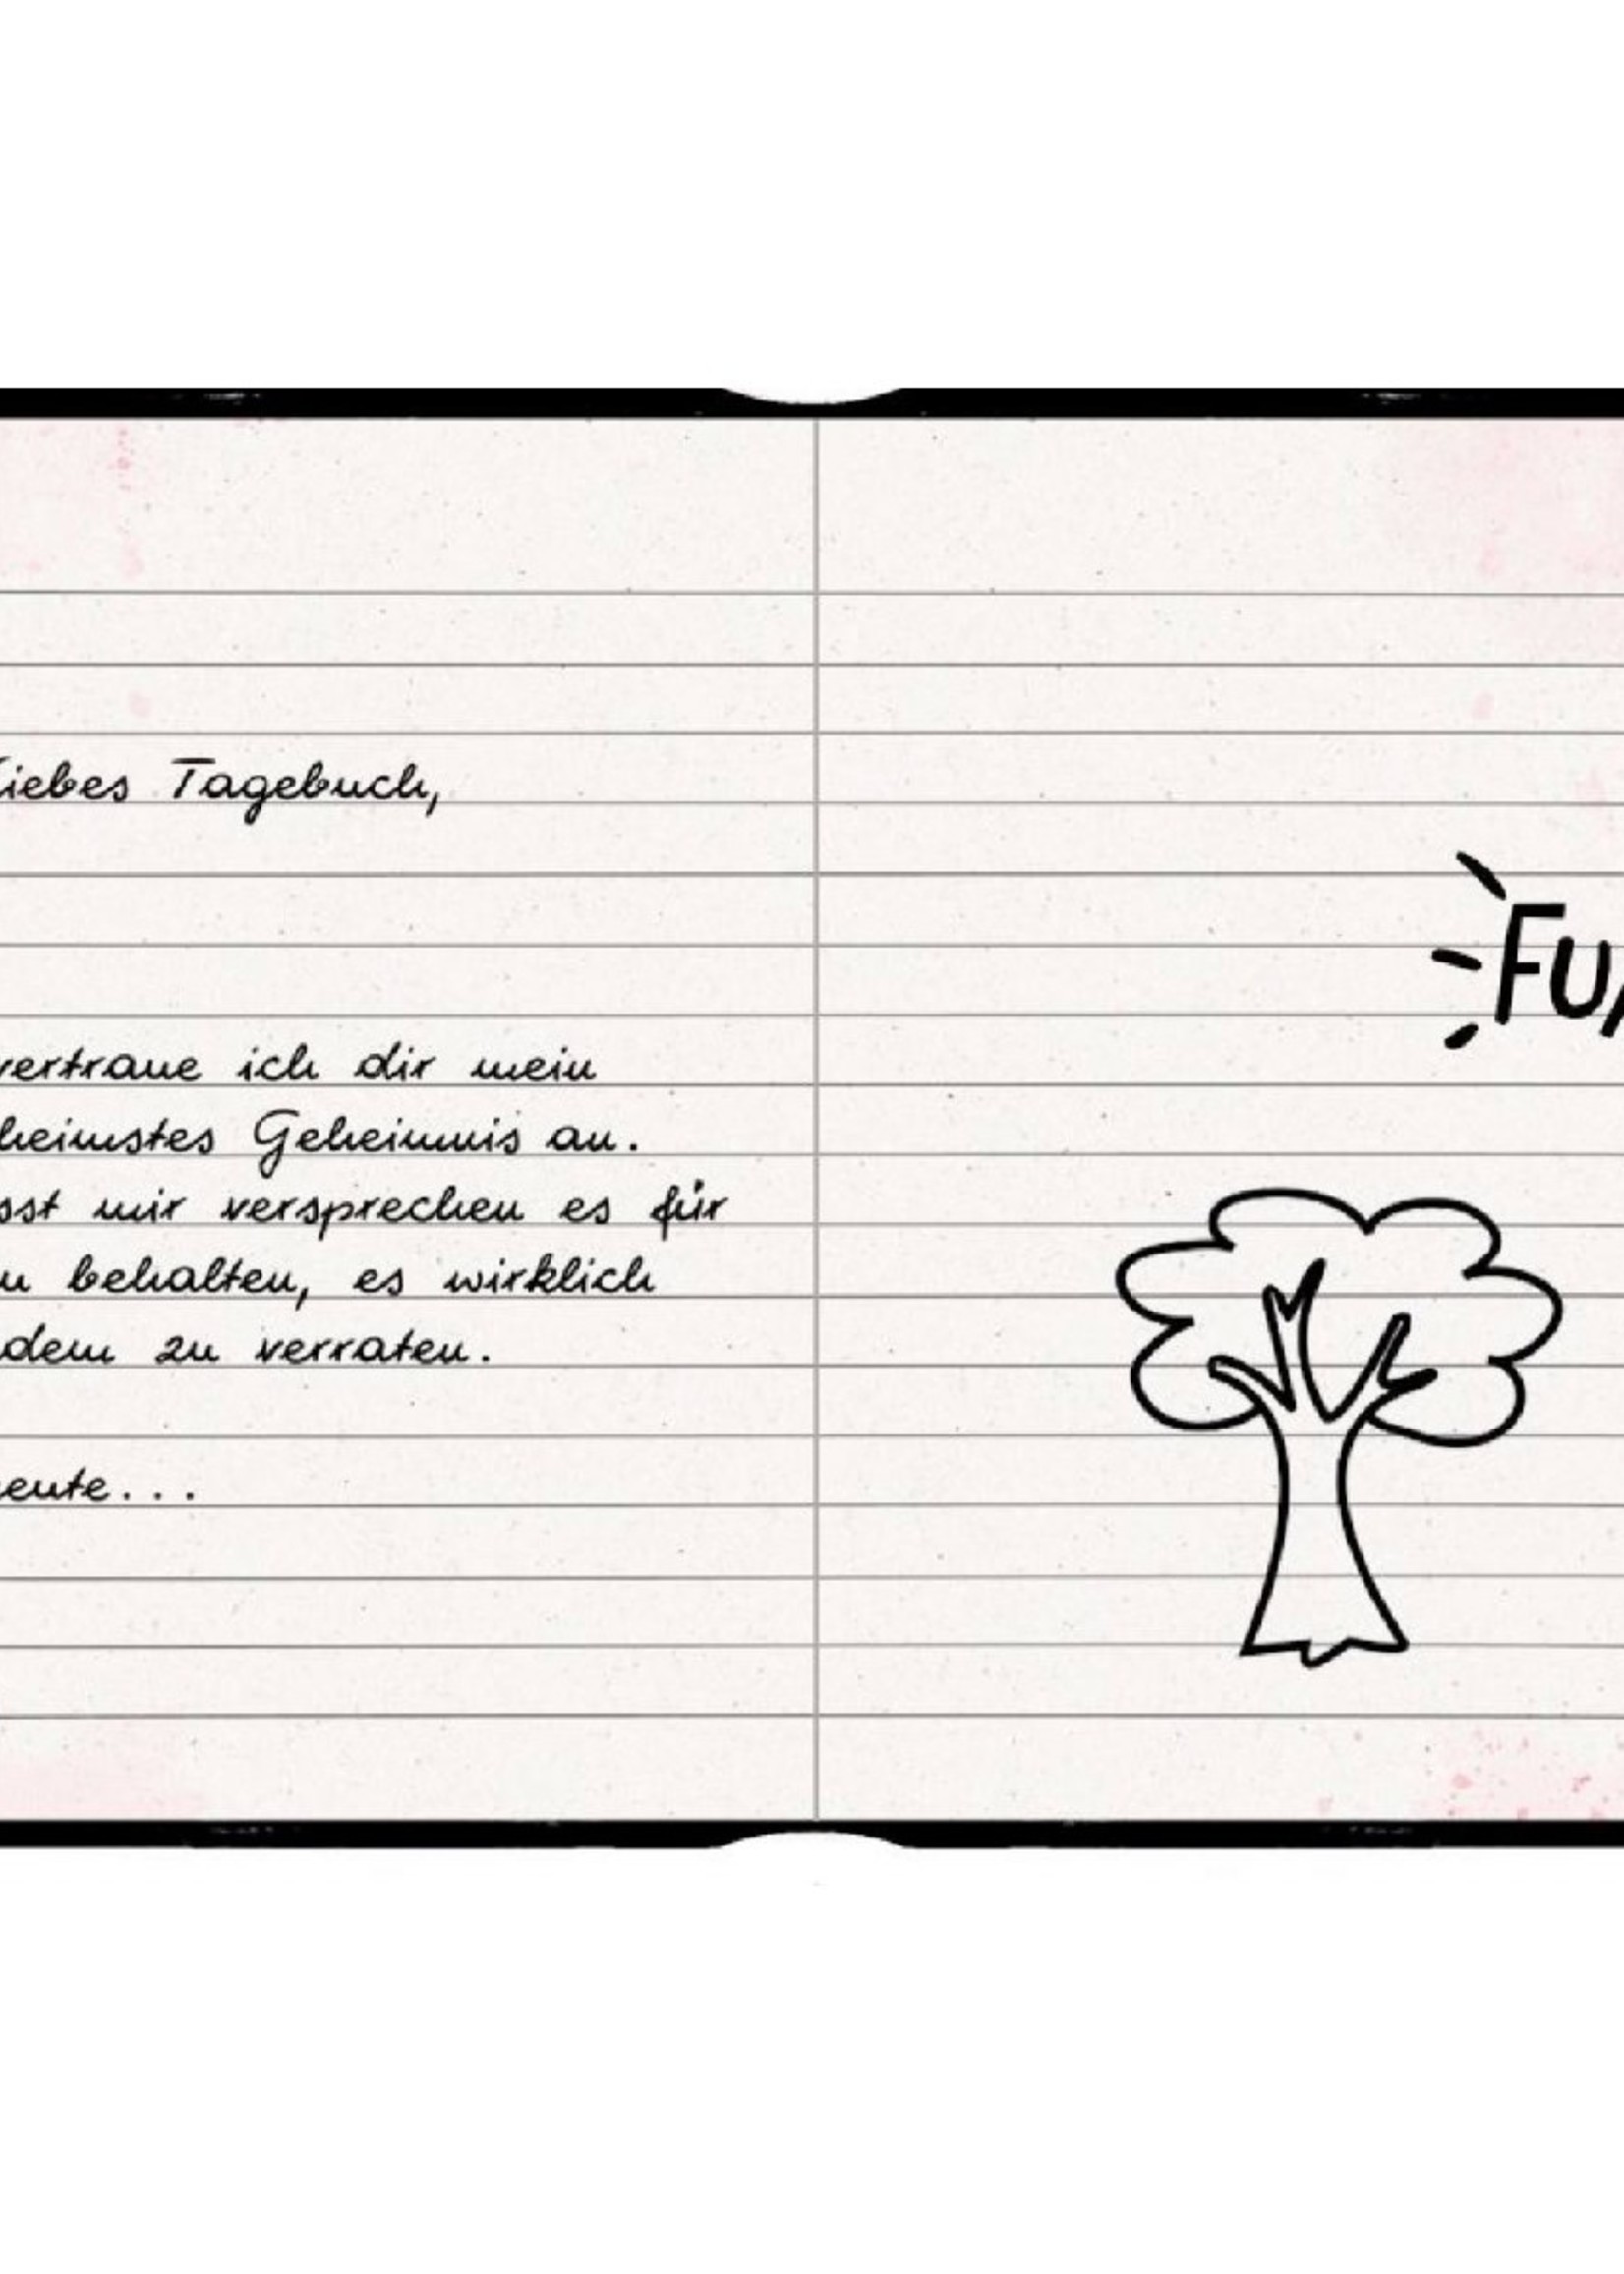 iebes Tagebuch,
vertraue ich dir mein
heimstes Geheimnis an.
sst mir versprechen es für
u behalten, es wirklich
dem zu verraten.
eute...
FU